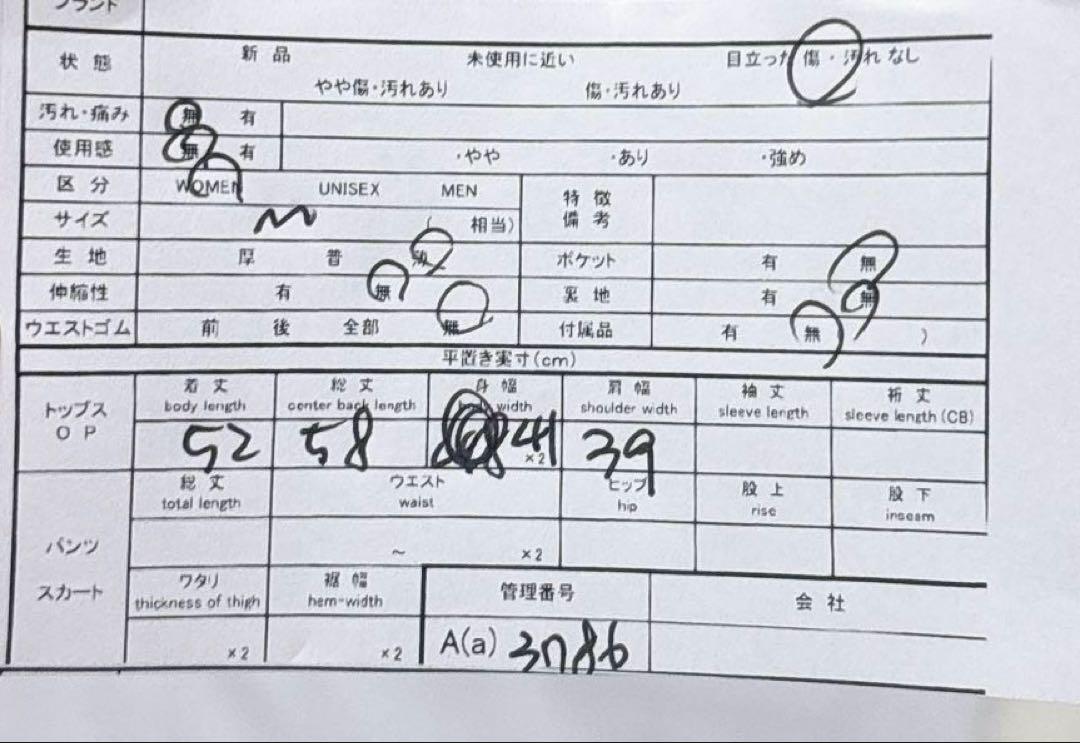 ブランド
状態 新品 未使用に近い 目立った傷・汚れなし
やや傷・汚れあり 傷・汚れあり
汚れ・痛み 無 有
使用感 無 有 ・やや ・あり ・強め
区分 WOMEN UNISEX MEN 特徴
備考
サイズ M ( 相当)
生地 厚 普 薄 ポケット 有 無
伸縮性 有 無 裏地 有 無
ウエストゴム 前 後 全部 無 付属品 有 無 )
平置き実寸(cm)
トップス
OP
着丈 総丈 身幅 肩幅 袖丈 裄丈
body length center back length width shoulder width sleeve length sleeve length (CB)
52 58 41 ×2 39
総丈 ウエスト ヒップ 股上 股下
total length waist hip rise inseam
パンツ ～ ×2
スカート
ワタリ 裾幅 管理番号 会社
thickness of thigh hem-width
×2 ×2 A(a) 3786